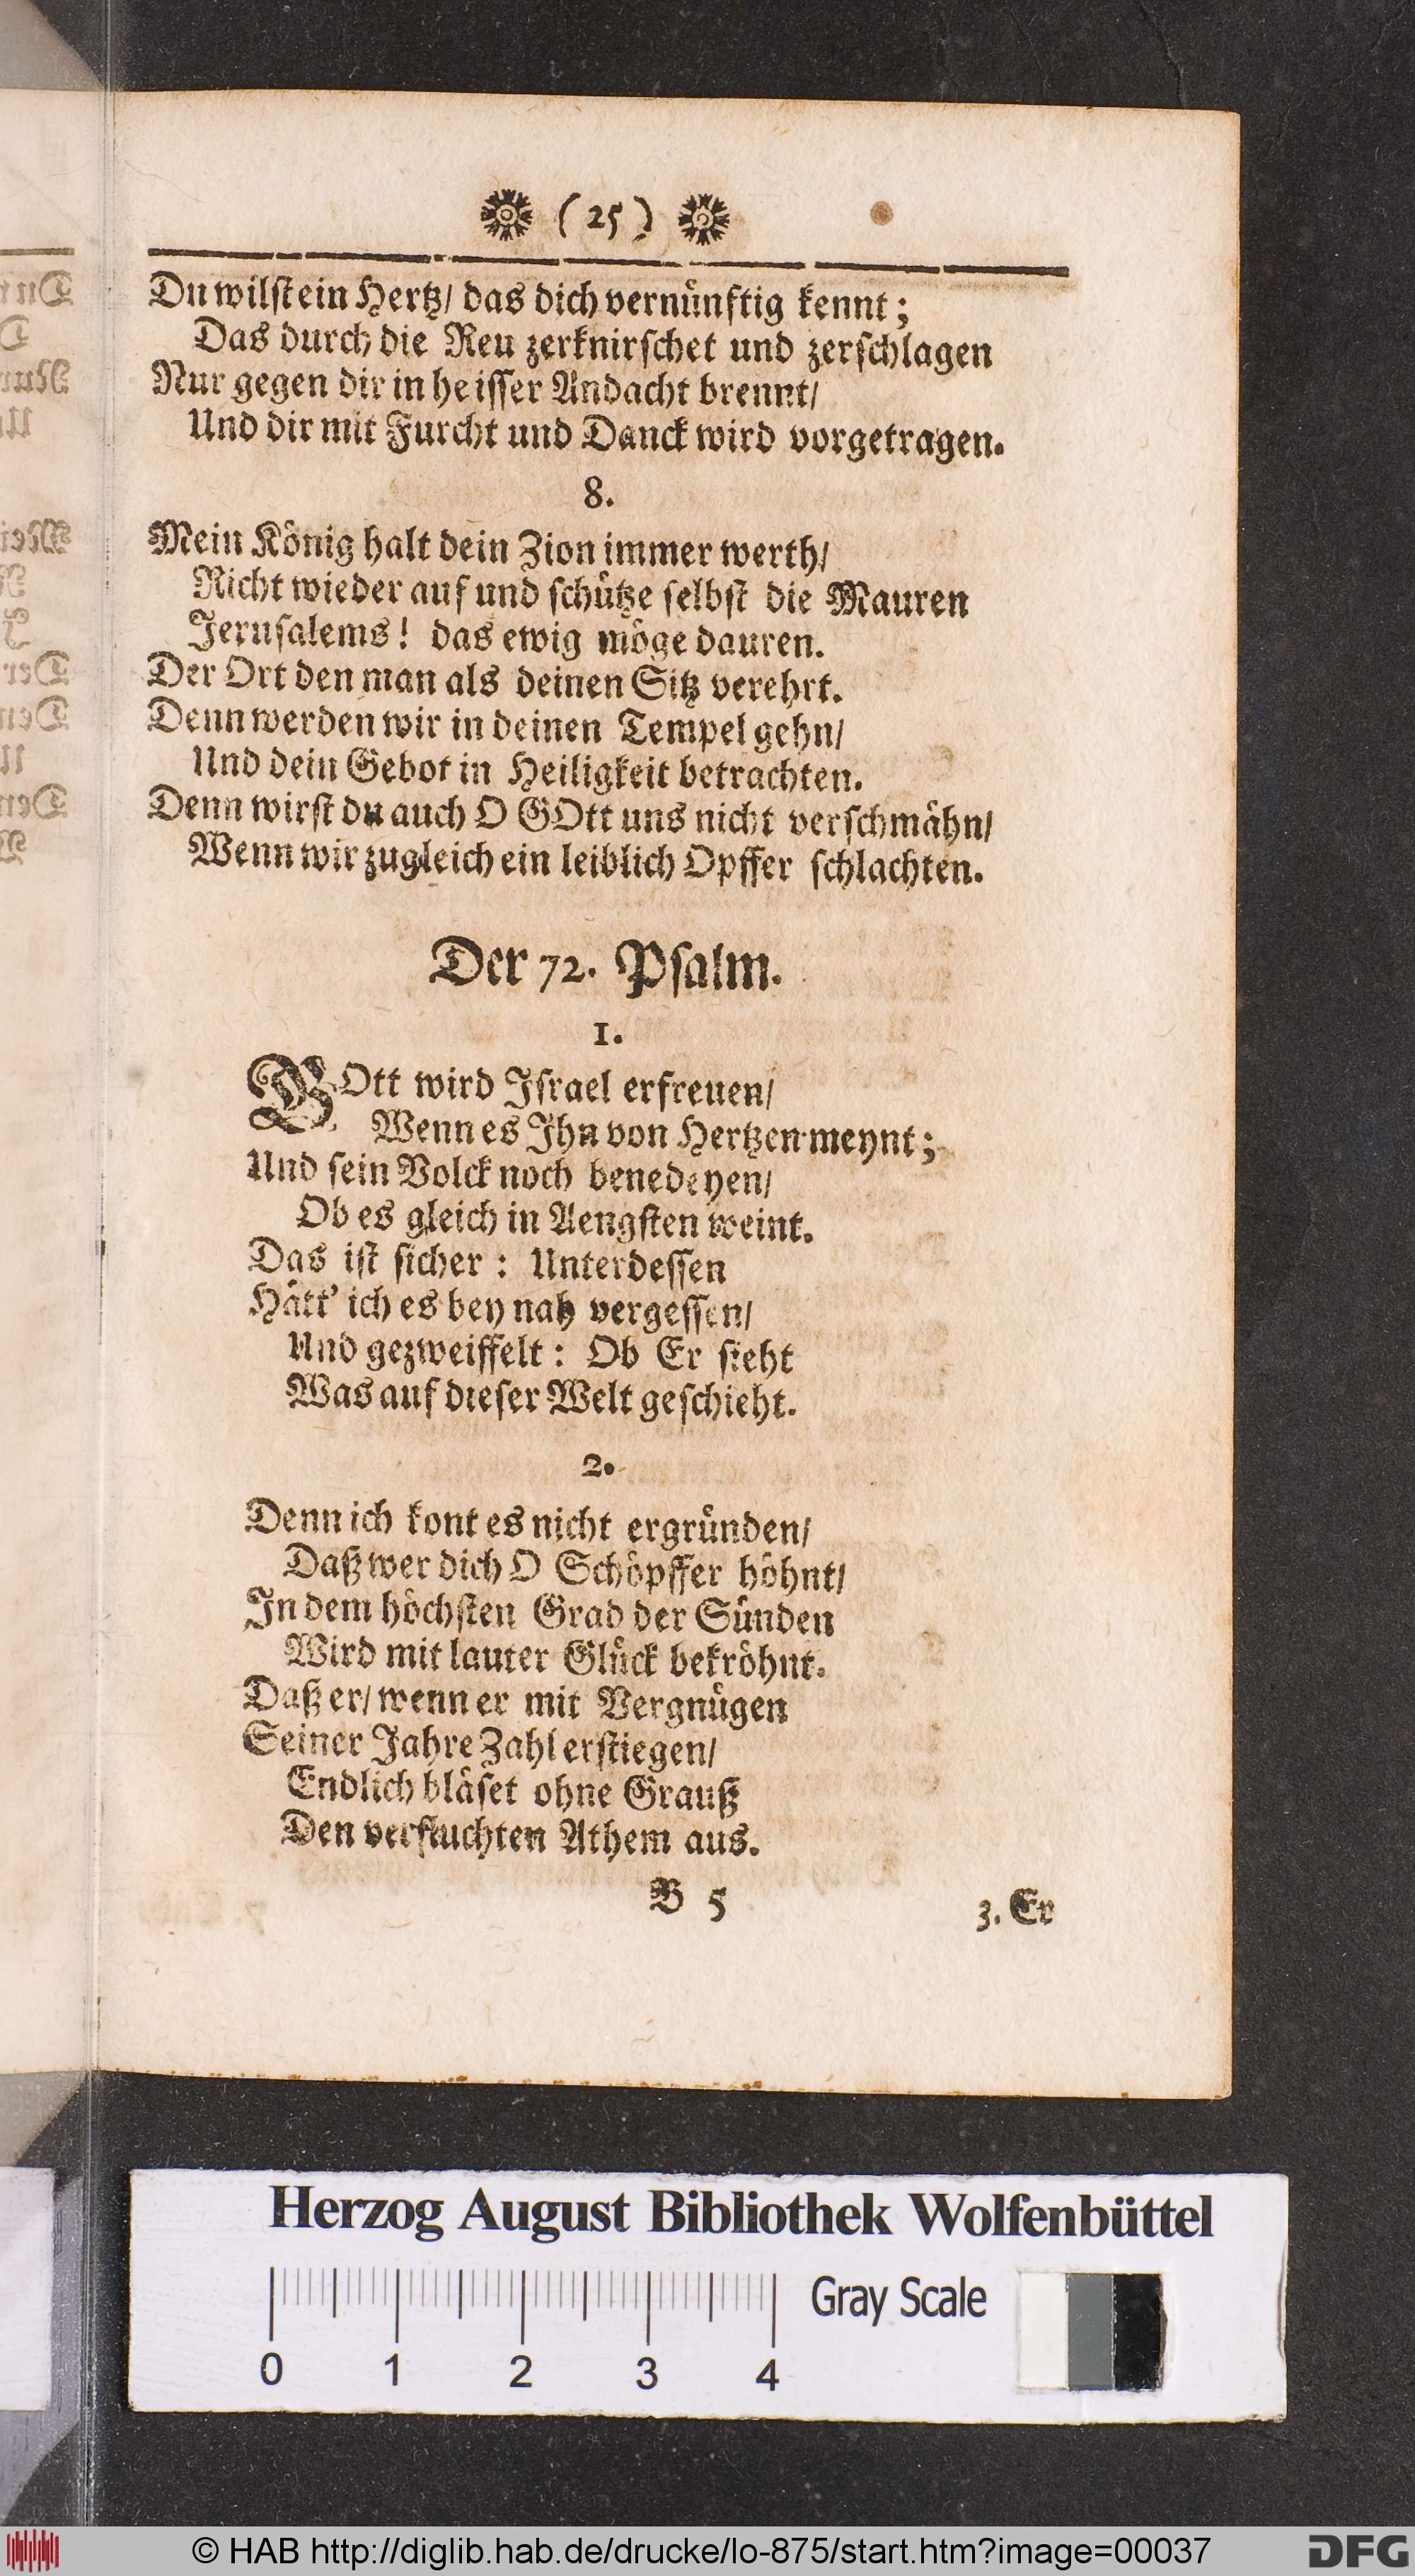 ( 25 )
Du wilſt ein Hertz/ das dich vernuͤnftig kennt;
Das durch die Reu zerknirſchet und zerſchlagen
Nur gegen dir in heiſſer Andacht brennt/
Und dir mit Furcht und Danck wird vorgetragen.
8.
Mein Koͤnig halt dein Zion immer werth/
Richt wieder auf und ſchuͤtze ſelbſt die Mauren
Jeruſalems! das ewig moͤge dauren.
Der Ort den man als deinen Sitz verehrt.
Denn werden wir in deinen Tempel gehn/
Und dein Gebot in Heiligkeit betrachten.
Denn wirſt du auch O GOtt uns nicht verſchmaͤhn/
Wenn wir zugleich ein leiblich Opffer ſchlachten.
Der 72. Pſalm.
1.
GOtt wird Iſrael erfreuen/
Wenn es Ihn von Hertzen meynt;
Und ſein Volck noch benedeyen/
Ob es gleich in Aengſten weint.
Das iſt ſicher: Unterdeſſen
Haͤtt' ich es bey nah vergeſſen/
Und gezweiffelt: Ob Er ſieht
Was auf dieſer Welt geſchieht.
2.
Denn ich kont es nicht ergruͤnden/
Daß wer dich O Schoͤpffer hoͤhnt/
In dem hoͤchſten Grad der Suͤnden
Wird mit lauter Gluͤck bekroͤhnt.
Daß er/ wenn er mit Vergnuͤgen
Seiner Jahre Zahl erſtiegen/
Endlich blaͤſet ohne Grauß
Den verfluchten Athem aus.
B 5
3. Er
Herzog August Bibliothek Wolfenbüttel
Gray Scale
0 1 2 3 4
© HAB http://diglib.hab.de/drucke/lo-875/start.htm?image=00037
DFG